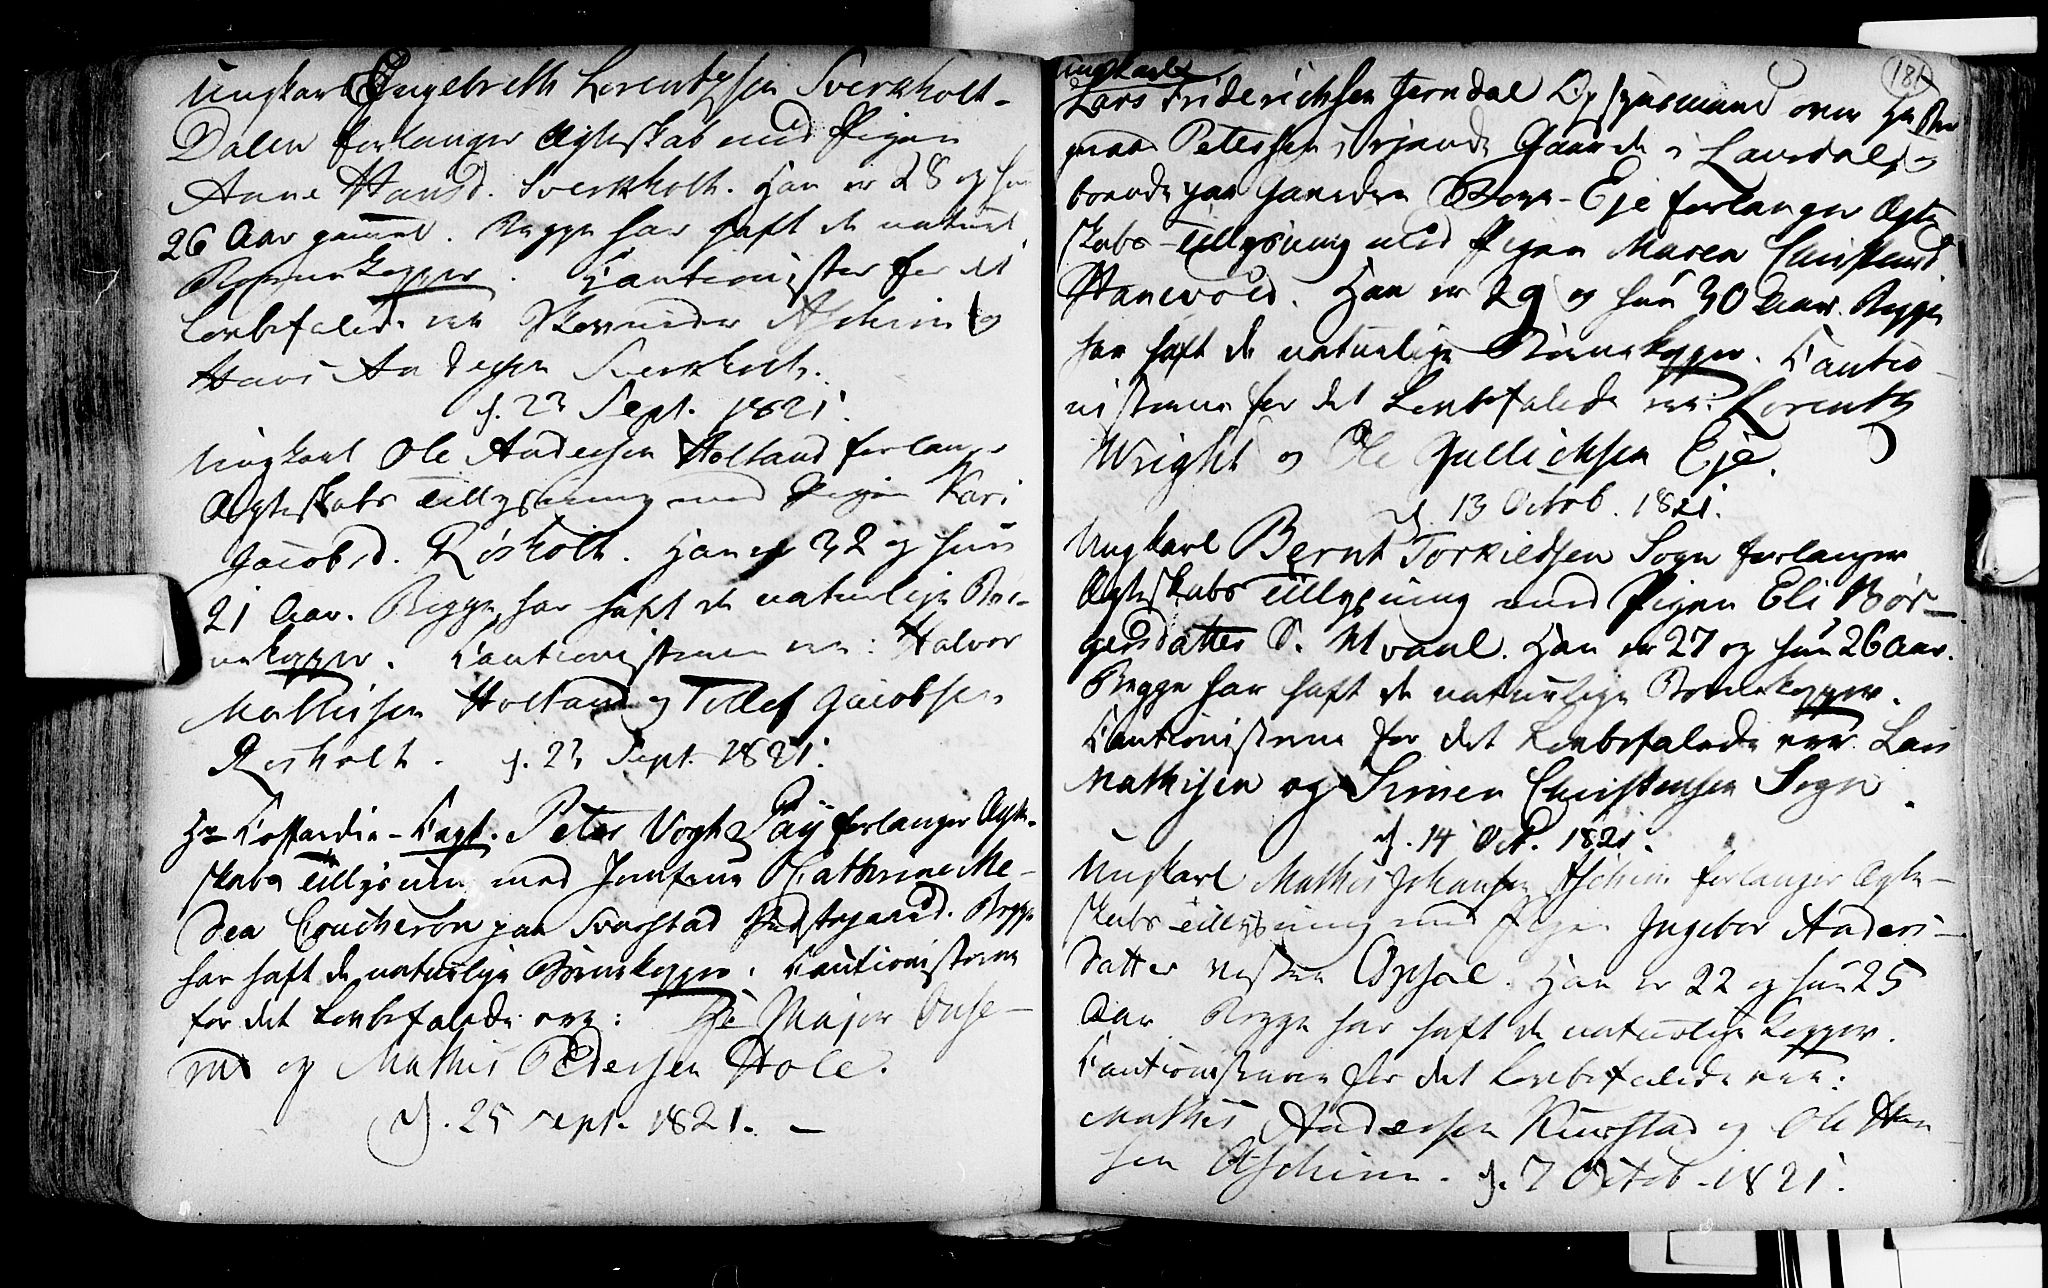 Ungkarl Engebreth Lorentzsen Sverkholt-
Dalen forlanger Ægteskab med Pigen
Anne Hansd. Sverkholt. Han er 28 og hun
26 Aar gammel. Begge har haft de naturl.
Børnekopper. Cautionister for det
Lovbefalede ere Aschim og
Hans Andersen Sverkholt.
d. 23 Sept. 1821.
Ungkarl Ole Andersen Holtand forlanger
Ægteskabs Tillysning med Pigen Kari
Jacobsd. Røsholt. Han er 32 og hun
21 Aar. Begge har haft de naturlige Bør-
nekopper. Cautionisterne ere: Halvor
Mathisen Holtand og Tollef Jacobsen
Røsholt. d. 23 Sept. 1821.
Hr Coffardie-Capt. Peter Vogt Pay forlanger Ægte-
skabs Tillysning med Jomfrue Cathrine Me-
dea Coucheron paa Svarstad. Begge
har haft de naturlige Børnekopper. Cautionisterne
for det Lovbefalede ere: Hr Major
og Mathis Pedersen Hole.
d. 25 Sept. 1821. –
181
Ungkarl
Lars Friderichsen Jerndal Opsynsmand over Hr
Petersens ejende Gaarde i Lausdal
boende paa sammes Eje forlanger Ægte
skabs-Tillysning med Pigen Maren Christensd.
Hanevold. Han er 29 og hun 30 Aar. Begge
har haft de naturlige Børnekopper. Cautio-
nisterne for det Lovbefalede ere: Lorentz
Wright og Ole Gullichsen Eje.
d. 13 Octob. 1821.
Ungkarl Bernt Torkildsen Sogn forlanger
Ægteskabs Tillysning med Pigen Eli Bør-
gersdatter S. Movaul. Han er 27 og hun 26 Aar.
Begge har haft de naturlige Børnekopper.
Cautionisterne for det Lovbefalede ere: Lars
Mathisen og Simen Christensen Sogn.
d. 14 Oct. 1821.
Ungkarl Mathis Johansen Aschim forlanger Ægte-
skabs Tillysning med Pigen Ingebor Anders-
datter Opsal. Han er 22 og hun 25
Aar Begge har haft de naturlige Kopper.
Cautionisterne for det Lovbefalede ere:
Mathis Andersen Ruustad og Ole Han
sen Aschim. d. 7 Octob. 1821.